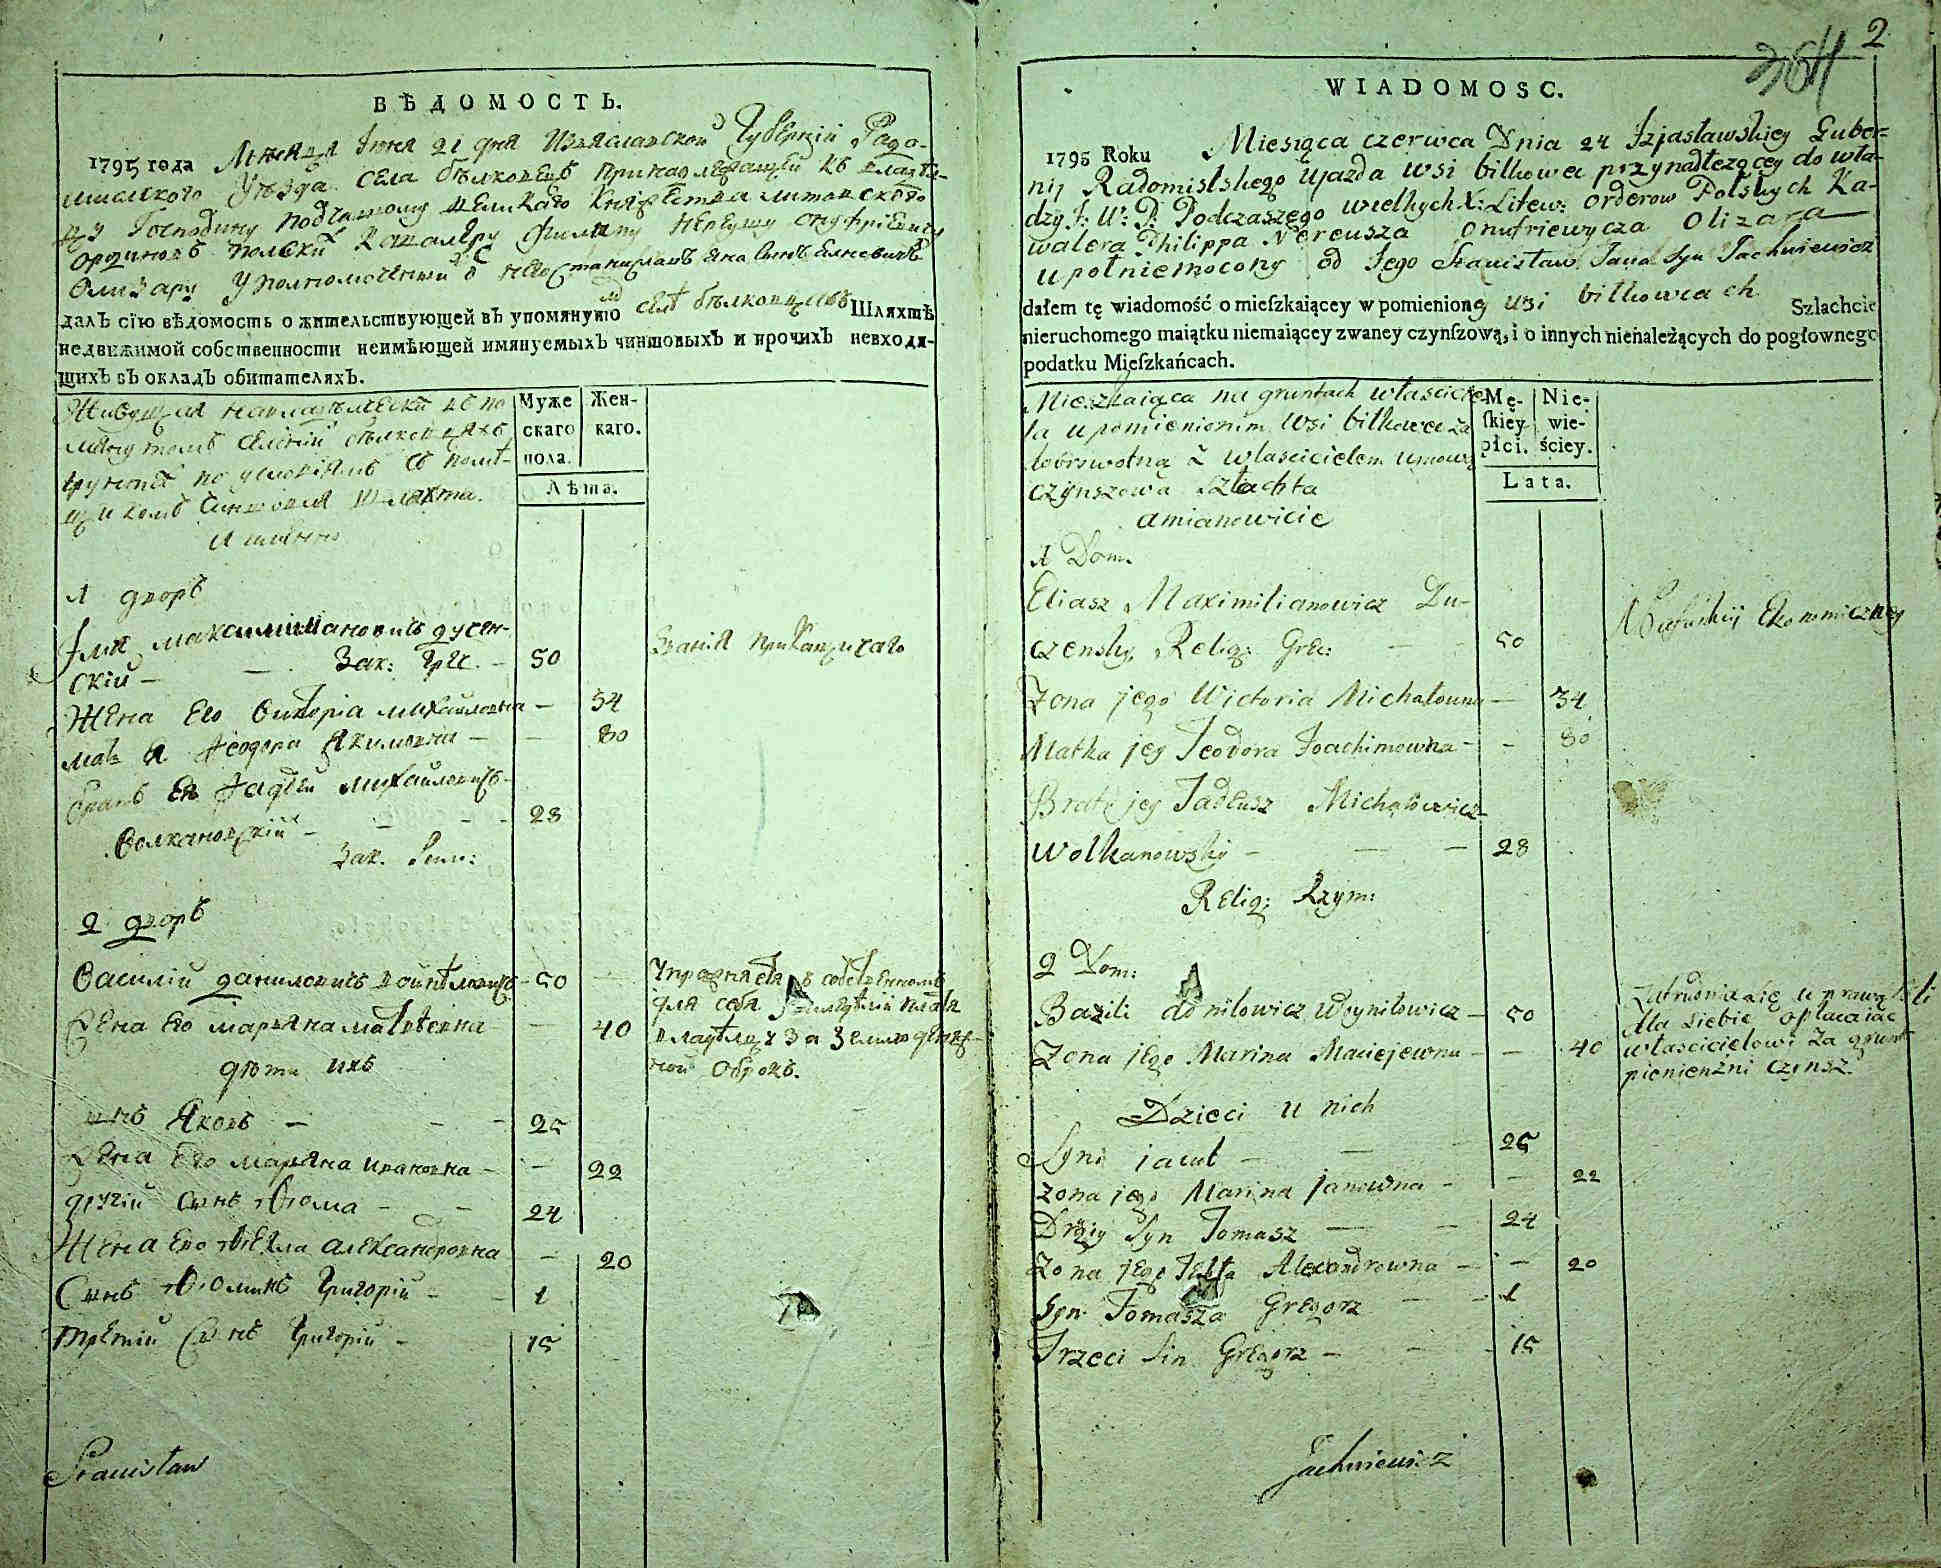 ВѢДОМОСТЬ.
1795 года Месяца Іюня 21 дня Изяславской Губерніи Радо-
мысльского Уѣзда села бѣлковецъ принадлежащей къ владѣль-
цу Господину подчашому великаго Княжества литовскаго
ординовъ полскихъ Кавалѣру Филипу Нереушу онуфріевичу
Олизару уполномоченный отъ него Станиславъ Яна Сынъ
далъ сію вѣдомость о жительствующей въ упомянутомъ селѣ бѣлковцахъ Шляхтѣ
недвижимой собственности неимѣющей имянуемыхъ чиншовыхъ и прочихъ невходя-
щихъ въ окладъ обитателяхъ.
Живущая на владѣльческой
селеніи бѣлковцахъ
грунтѣ по условіямъ съ помѣ-
щикомъ Чиншовая Шляхта
а имянно
Муже
скаго
пола.
Жен-
каго.
Лѣта.
1 дворъ
Ілія максимиліановичъ дусен-
скій — Зак: Грес. — 50
званія прикащичаго
Жена Его Викторія михайловна — 34
мать Его Ѳеодора Якимовна — 80
братъ Ея Фадѣй михайловичъ
Волкановскій — 28
Зак. Рим:
2 дворъ
Василій даниловичъ войнѣловичъ — 50
Жена Его марьяна матвѣевна — 40
дѣти ихъ
Упражняется въ собственномъ
для себя платя
владѣлцу за землю денеж-
ной оброкъ.
сынъ Яковъ — 25
Жена Его марьяна ивановна — 22
другій сынъ Ѳома — 24
Жена Его Ѳекла александровна — 20
Сынъ Ѳоминъ Григорій — 1
третій Сынъ Григорій — 15
Stanisław
2
264
WIADOMOSC.
1795 Roku Miesiąca czerwca Dnia 21 Izjasławskiey Guber-
nij Radomislskego Ujazda wsi bilkowec przynadłeżącey do wła-
dzy J: W: P. Podczaszego wielkych X: Litew: orderow Polskych Ka-
walera Philippa Nereusza Onufriewycza Olizara
upołniemocony od Jego Stanisław Jana Syn Jachniewicz
dałem tę wiadomość o mieſzkaiącey w pomienioney wsi bilkowcach Szlachcie
nieruchomego maiątku niemaiącey zwaney czynſzową, i o innych nienależących do pogłownego
podatku Mieſzkańcach.
Mieszkaiąca na gruntach własciciе-
la upomienionim wsi bilkowce za
dobrowolną z wlascicielem umową
czynszowa szlachta
amianowicie
Mę-
ſkiey
płci.
Nie-
wie-
ściey.
Lata.
1 Dom.
Eliasz Maximilianowicz Du-
czensky, Relig: Grec: — 50
Ekonomiczney
Zona jego Wictoria Michałowna — 34
Matka jey Teodora Joachimowna — 80
Brat jey Tadeusz Michałowicz
Wolkanowsky — 28
Relig: Rzym:
2 Dom:
Bazili danilowicz Woynilowicz — 50
Zona jego Marina Maciejewna — 40
Zatrudnia się uprawą roli
dla siebie opłacaiąc
własccicielowi za grunt
pienienżni czynsz.
Dzieci u nich
Syn jacub — 25
zona jego Marina janowna — 22
Drugy Syn Tomasz — 24
Zona jego Tekla Alexandrowna — 20
Syn Tomasza Gregorz — 1
Trzeci Sin Gregorz — 15
Jachniewicz